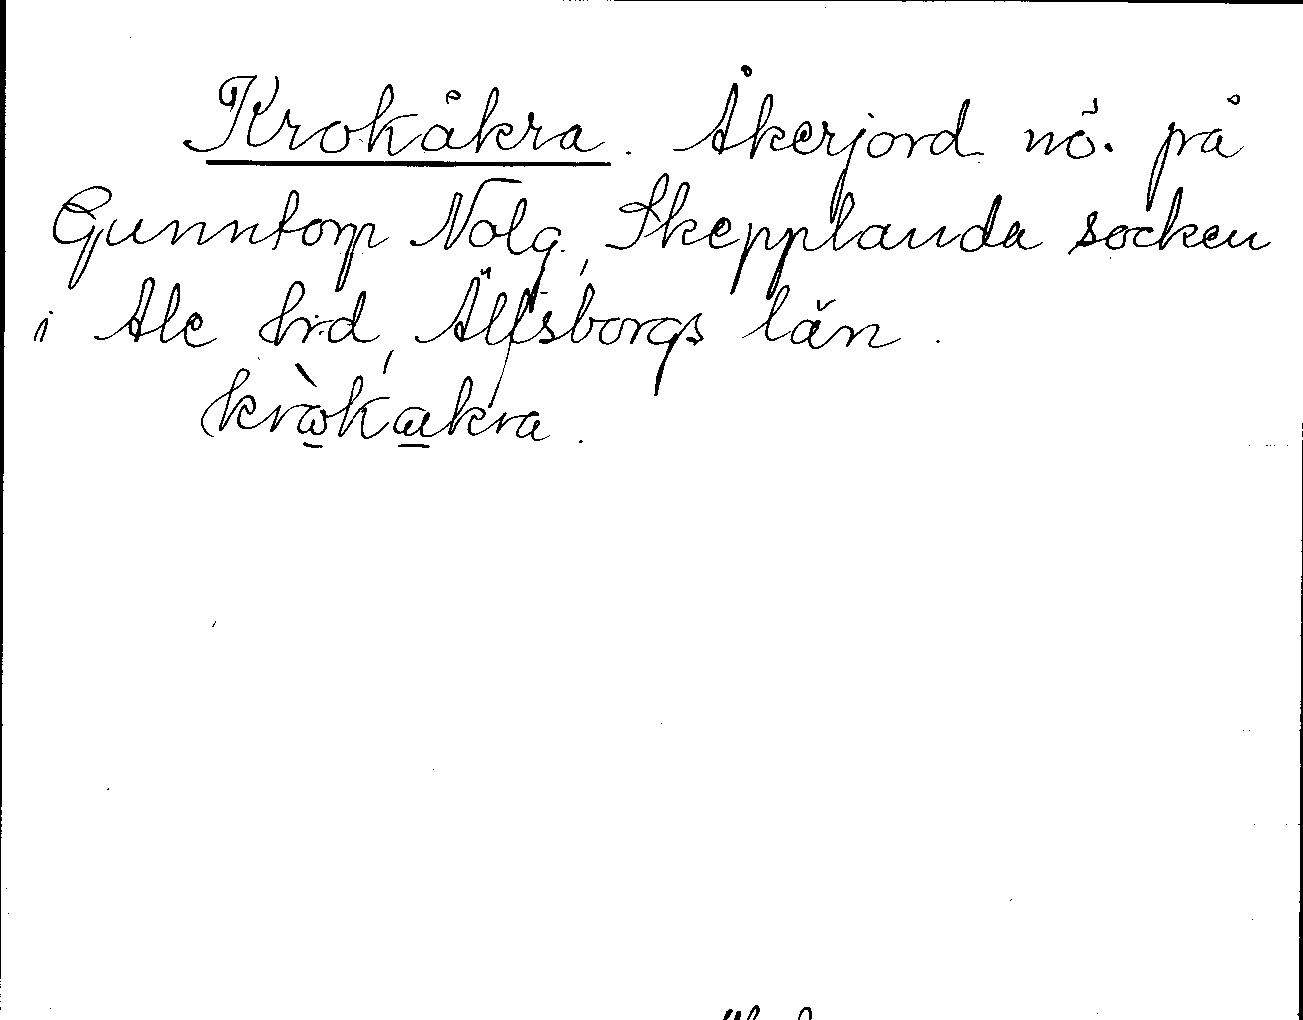 Krokåkra. Åkerjord nö. på
Gunntorp Nolg., Skepplanda socken
i Ale hrd, Älfsborgs län.
kròkakra.